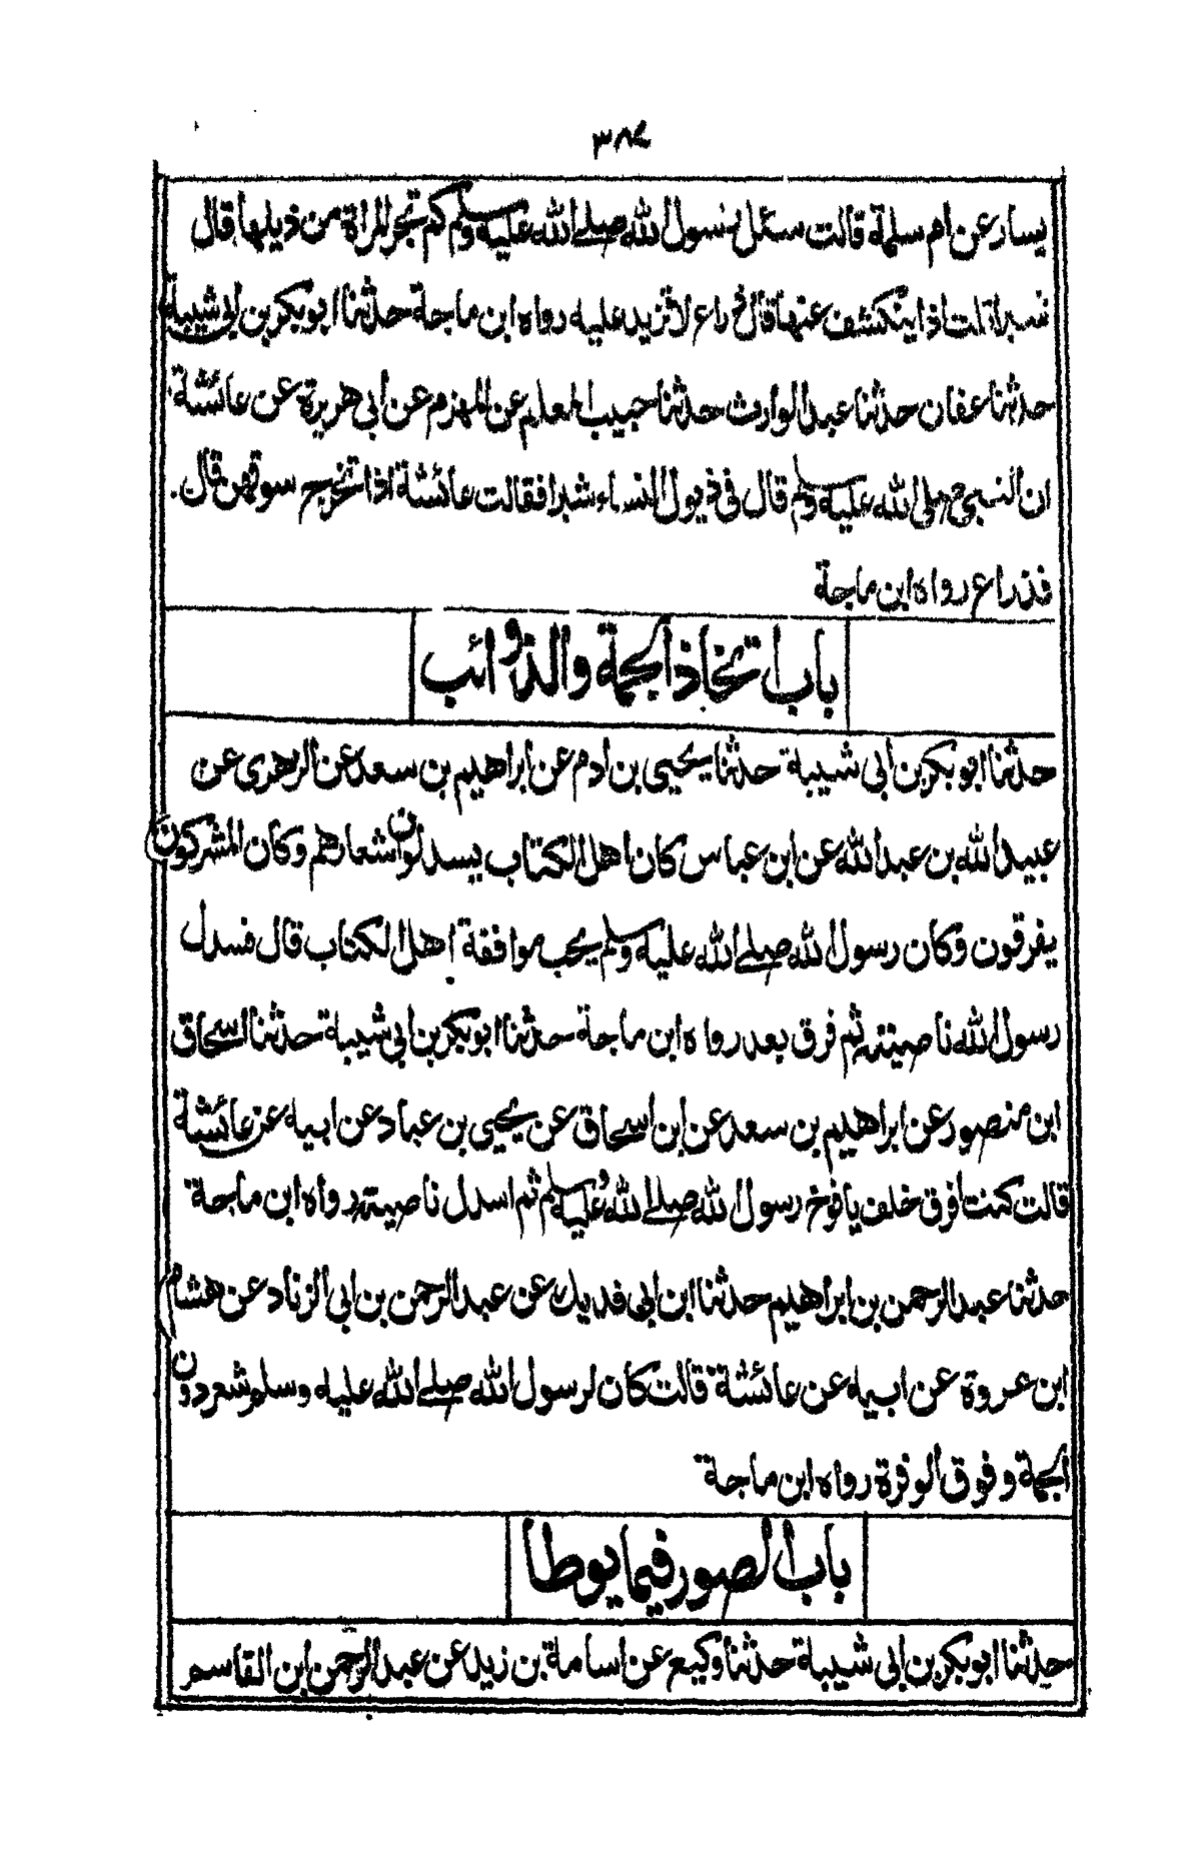 يسار عن ام سلمة قالت سئل رسول الله صلے الله عليه وسلم كم تجر المراة من ذيلها قال
شبرا قلت اذا ينكشف عنها قال ذراع لا تزيد عليه رواه ابن ماجة حدثنا ابوبكر بن ابى شيبة
حدثنا عفان حدثنا عبد الوارث حدثنا حبيب المعلم عن المهزم عن أبى هريرة عن عائشة
ان النبى صلى الله عليه وسلم قال فى ذيول النساء شبرا فقالت عائشة اذا تخرج سوقهن قال
فذراع رواه ابن ماجة
باب اتخاذ الجمة والذوائب
حدثنا ابوبكر بن ابى شيبة حدثنا يحيى بن ادم عن ابراهيم بن سعد عن الزهرى عن
عبيد الله بن عبد الله عن ابن عباس كان اهل الكتاب يسدلون اشعارهم وكان المشركون
يفرقون وكان رسول الله صلے الله عليه وسلم يحب موافقة اهل الكتاب قال فسدل
رسول الله ناصيته ثم فرق بعد رواه ابن ماجة حدثنا ابوبكر بن أبى شيبة حدثنا اسحاق
ابن منصور عن ابراهيم بن سعد عن ابن اسحاق عن يحيى بن عباد عن ابيه عن عائشة
قالت كنت افرق خلف يافوخ رسول الله صلے الله عليه وسلم ثم اسدل ناصيته رواه ابن ماجة
حدثنا عبد الرحمن بن ابراهيم حدثنا ابن ابى فديك عن عبد الرحمن بن ابى الزناد عن هشام
ابن عروة عن ابيه عن عائشة قالت كان لرسول الله صلے الله عليه وسلم شعر دون
الجمة وفوق الوفرة رواه ابن ماجة
باب الصور فيما يوطا
حدثنا ابوبكر بن ابى شيبة حدثنا وكيع عن اسامة بن زيد عن عبد الرحمن ابن القاسم